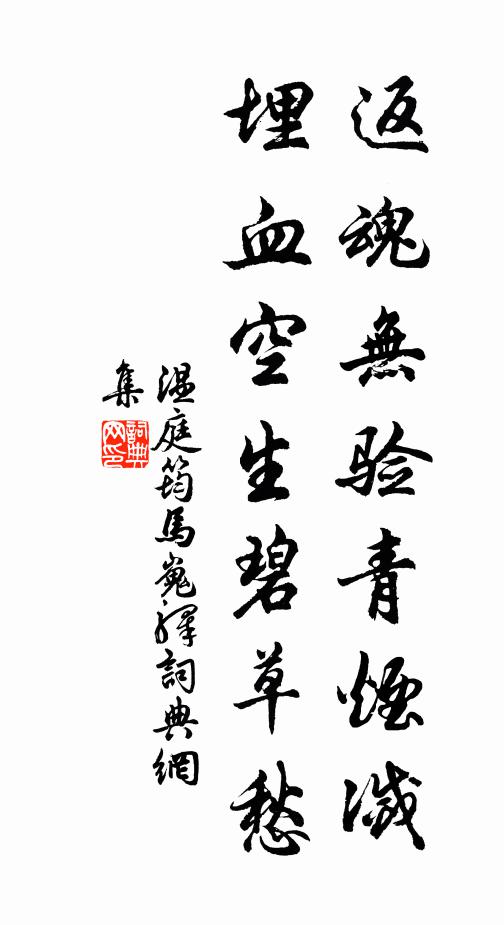 返魂無验青煙滅
埋血空生碧草愁
温庭筠馬嵬驛詞典網
集
詞典网印